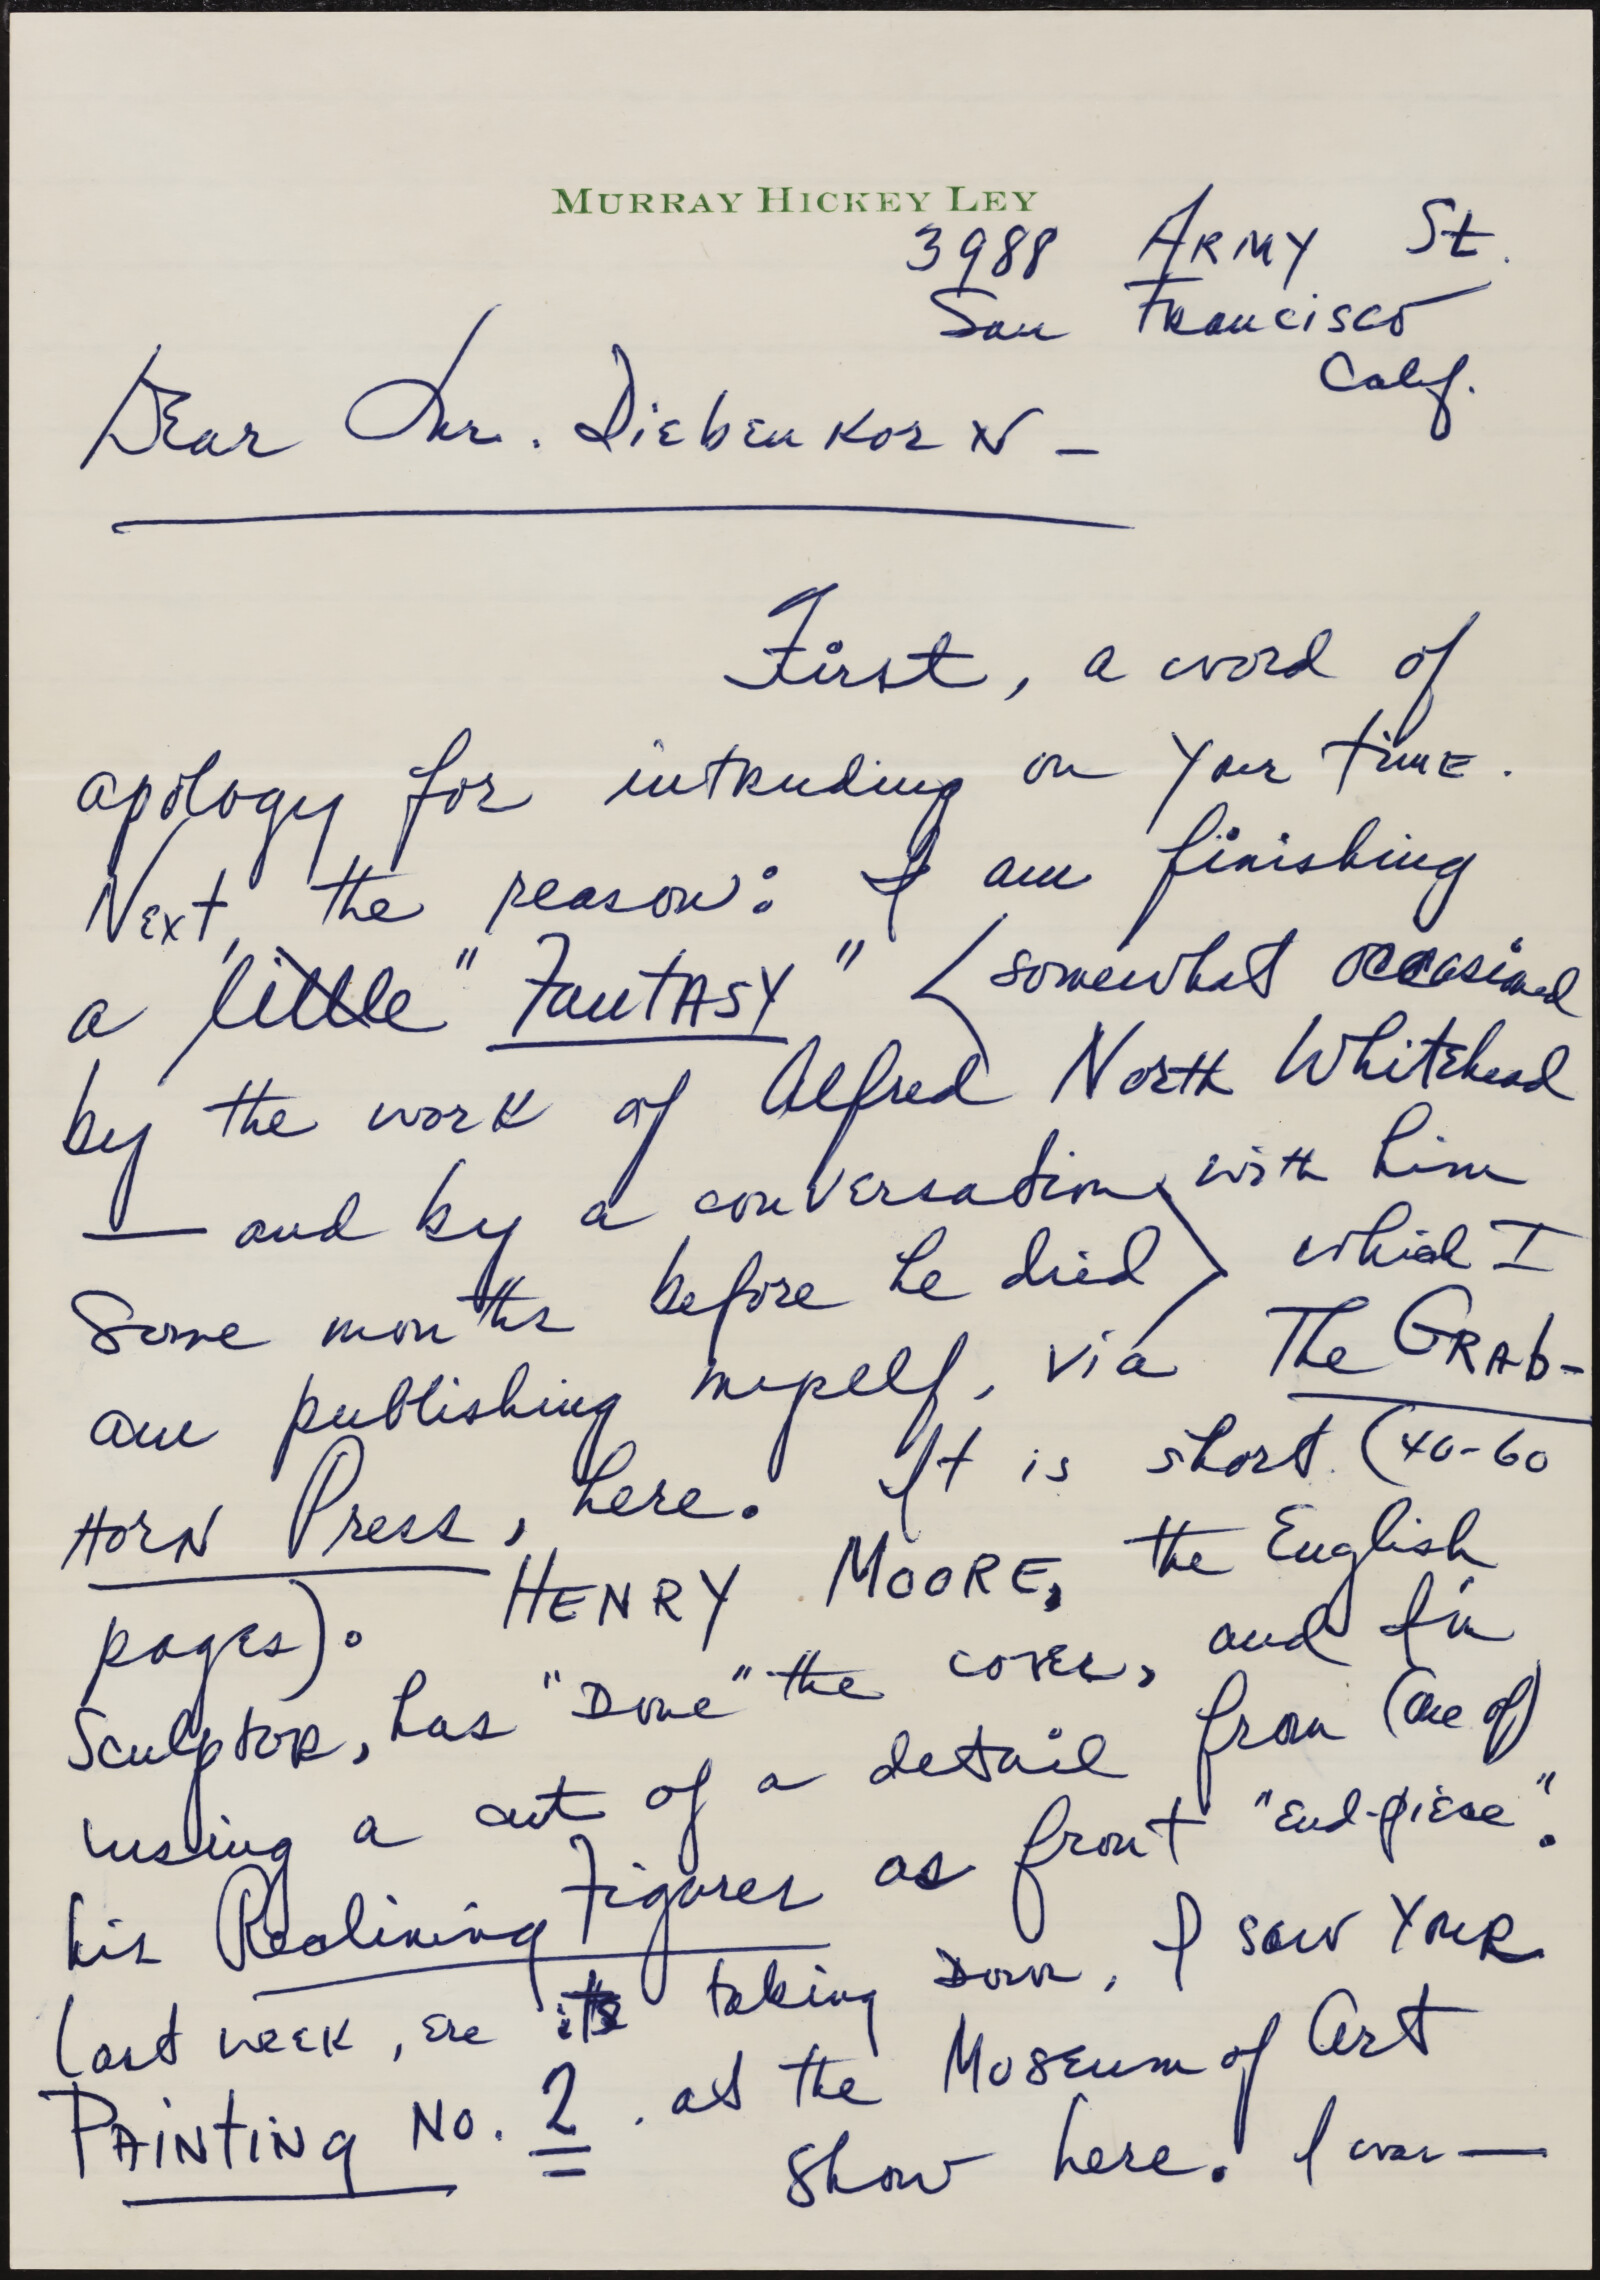 MURRAY HICKEY LEY
3988 ARMY St.
San Francisco
Calif.
Dear Mr. Diebenkorn —
First, a word of
apology for intruding on your time.
Next, the reason: I am finishing
a little "FantASY" < somewhat occasioned
by the work of Alfred North Whitehead
— and by a conversation with him
some months before he died > which I
am publishing myself, via The GRAb-
HorN Press, here. It is short (40-60
pages). HENRY MOORE, the English
Sculptor, has "Done" the cover, and I'm
using a cut of a detail from (one of)
his Reclining Figures as front "end-piece".
Last week, ere its taking down, I saw YouR
PAINtiNg No. 2 at the Museum of Art
show here. I was —